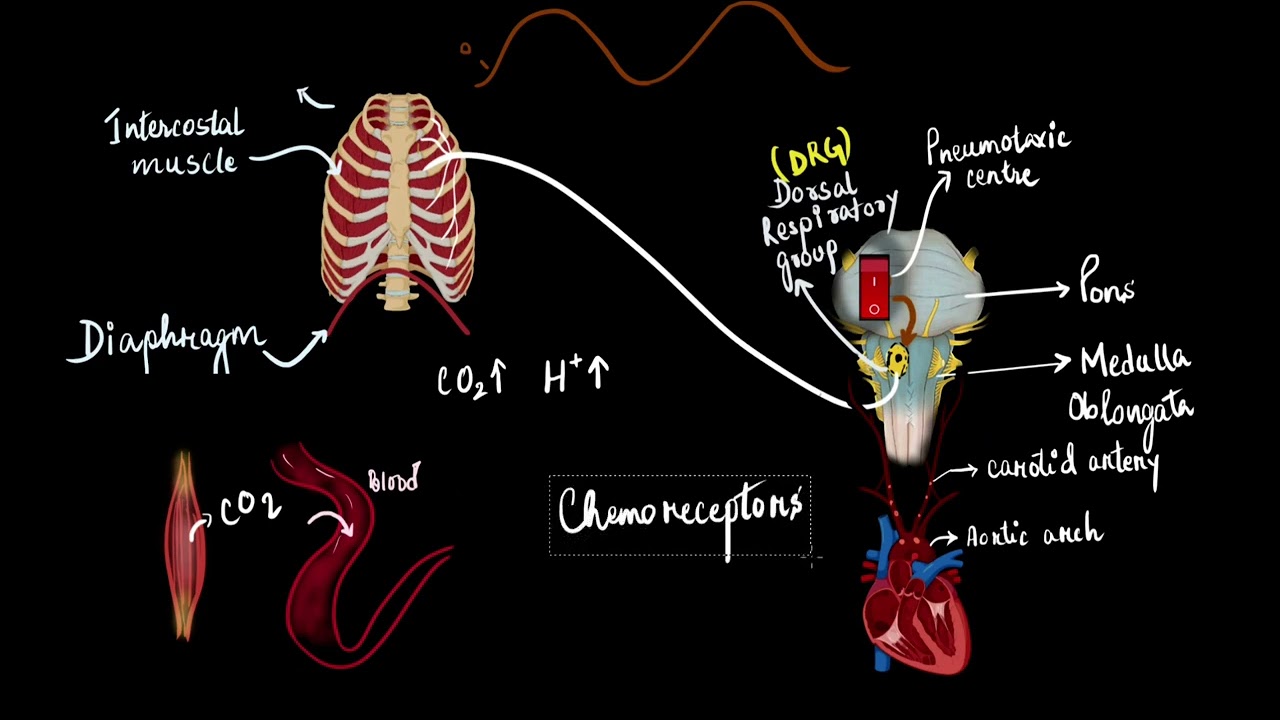 Intercostal
muscle
(DRG)
Dorsal
Respiratory
group
Pneumotaxic
centre
Pons
Diaphragm
CO₂↑ H⁺↑
Medulla
Oblongata
carotid artery
Blood
CO2
Chemoreceptors
Aortic arch